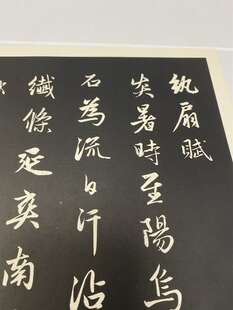 紈扇賦
炎暑時至陽烏
石為流白汗沾
纖條延爽南